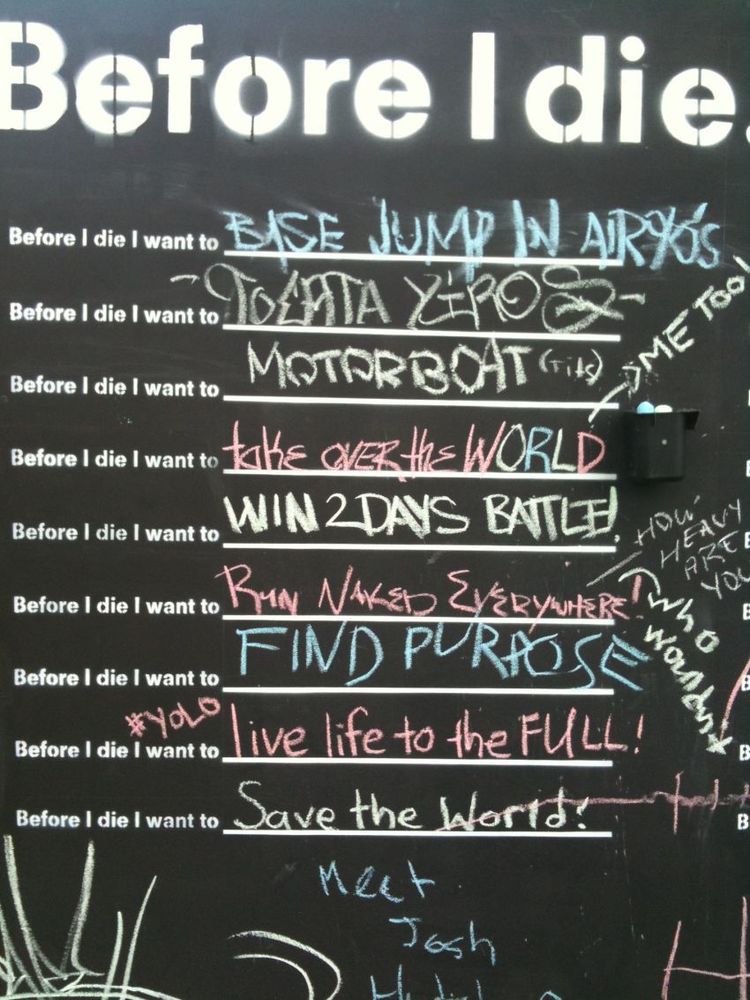 Before I die.
Before I die I want to BASE JUMP IN AIR90s
Before I die I want to
Before I die I want to MOTORBOAT (Tits)
ME TOO!
Before I die I want to take OVER the WORLD
Before I die I want to WIN 2DAYS BATTLE!
HOW HEAVY ARE YOU
Before I die I want to RUN NAKED EVERYWHERE!
Who Wouldn't
Before I die I want to FIND PURPOSE
#YOLO
Before I die I want to live life to the FULL!
Before I die I want to Save the World!
Meet
Josh